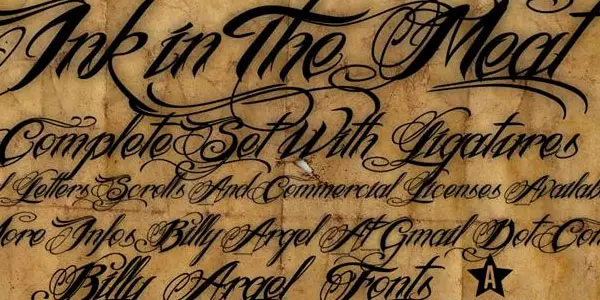 Ink in The Meat
Complete Set With Ligatures
Letters Scrolls And Commercial Licenses Availab
More Infos Billy Argel At Gmail Dot Com
Billy Argel Fonts A